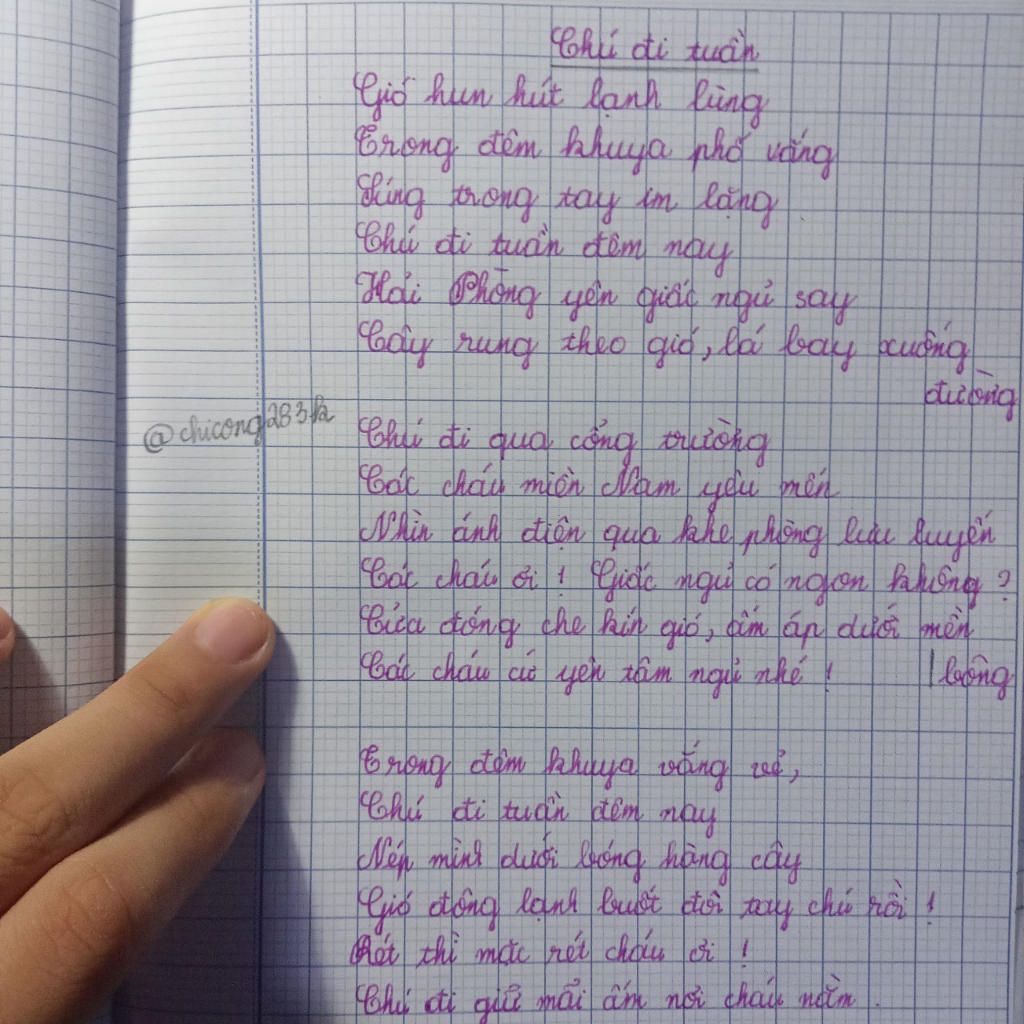 Chú đi tuần
Gió hun hút lạnh lùng
Trong đêm khuya phố vắng
Súng trong tay im lặng
Chú đi tuần đêm nay
Hải Phòng yên giấc ngủ say
Cây rung theo gió, lá bay xuống
đường
@chicong283k
Chú đi qua cổng trường
Các cháu miền Nam yêu mến
Nhìn ánh điện qua khe phòng lưu luyến
Các cháu ơi ! Giấc ngủ có ngon không ?
Cửa đóng che kín gió, ấm áp dưới mền
bông
Các cháu cứ yên tâm ngủ nhé !
Trong đêm khuya vắng vẻ,
Chú đi tuần đêm nay
Nép mình dưới bóng hàng cây
Gió đông lạnh buốt đôi tay chú rồi !
Rét thì mặc rét cháu ơi !
Chú đi giữ mãi ấm nơi cháu nằm.